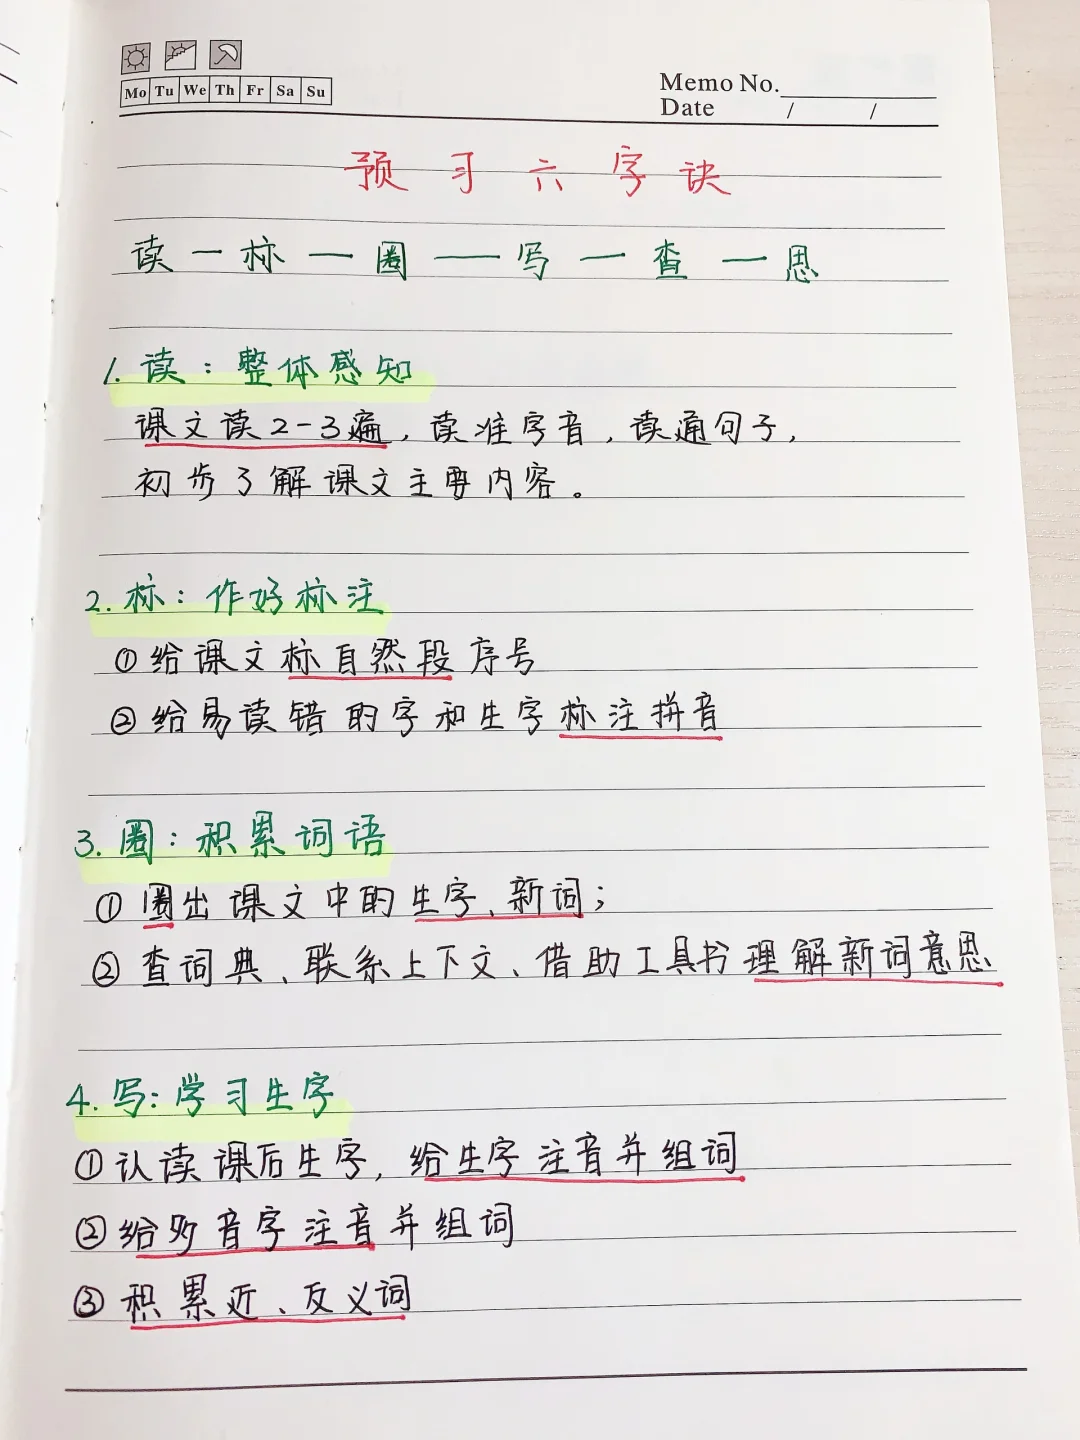 Mo Tu We Th Fr Sa Su
Memo No.
Date / /
预习六字诀
读一标一圈一写一查一思
1. 读：整体感知
课文读2-3遍，读准字音，读通句子，
初步了解课文主要内容。
2. 标：作好标注
①给课文标自然段序号
②给易读错的字和生字标注拼音
3. 圈：积累词语
①圈出课文中的生字、新词；
②查词典、联系上下文、借助工具书理解新词意思
4. 写：学习生字
①认读课后生字，给生字注音并组词
②给多音字注音并组词
③积累近、反义词